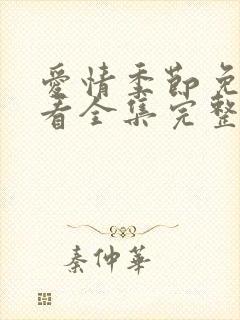 愛情季節免
看全集完整
秦仲華